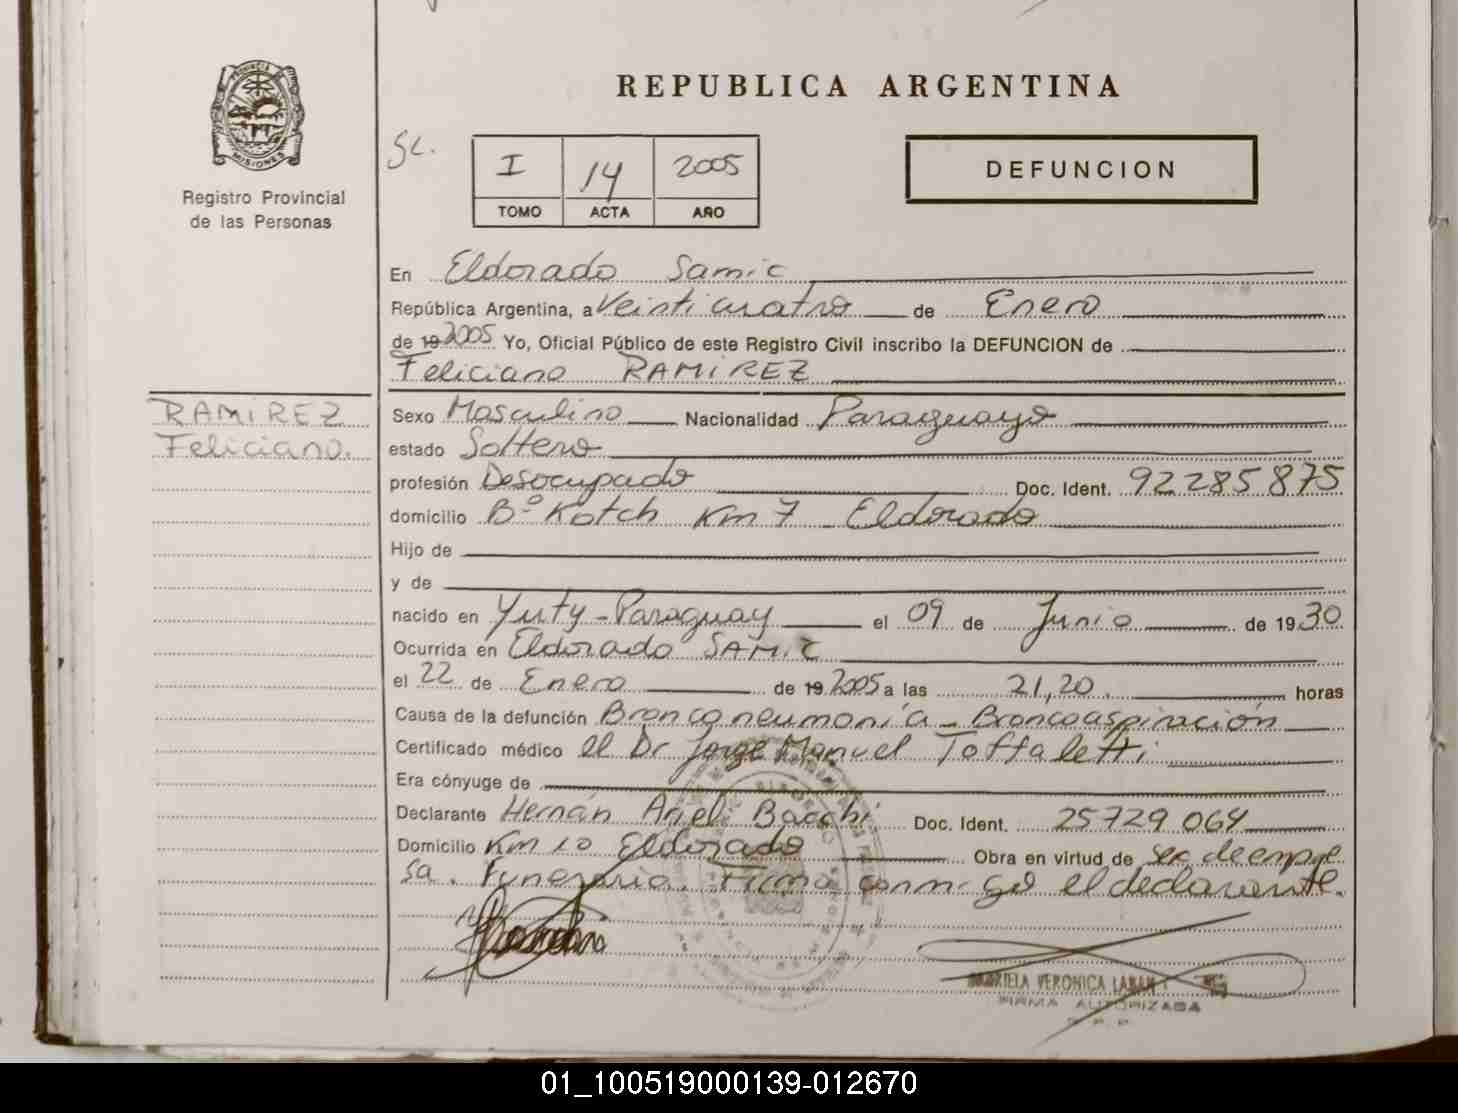 REPUBLICA ARGENTINA
PROVINCIA DE MISIONES
Registro Provincial
de las Personas
Sc.
I 14 2005
TOMO ACTA AÑO
DEFUNCION
En Eldorado Samic
República Argentina, a Veinticuatro de Enero
de 19 2005 Yo, Oficial Público de este Registro Civil inscribo la DEFUNCION de
Feliciano RAMIREZ
RAMIREZ
Feliciano.
Sexo Masculino Nacionalidad Paraguayo
estado Soltero
profesión Desocupado Doc. Ident. 92285875
domicilio Bº Kotch Km 7 - Eldorado
Hijo de
y de
nacido en Yuty - Paraguay el 09 de Junio de 1930
Ocurrida en Eldorado SAMIC
el 22 de Enero de 19 2005 a las 21,20. horas
Causa de la defunción Bronconeumonía - Broncoaspiración
Certificado médico el Dr Jorge Manuel Toffaletti
Era cónyuge de
Declarante Hernán Ariel Bacchi Doc. Ident. 25729064
Domicilio Km 10 Eldorado Obra en virtud de ser de empre
sa. Funeraria. Firma conmigo el declarante.
VERONICA
FIRMA AUTORIZADA
01_100519000139-012670